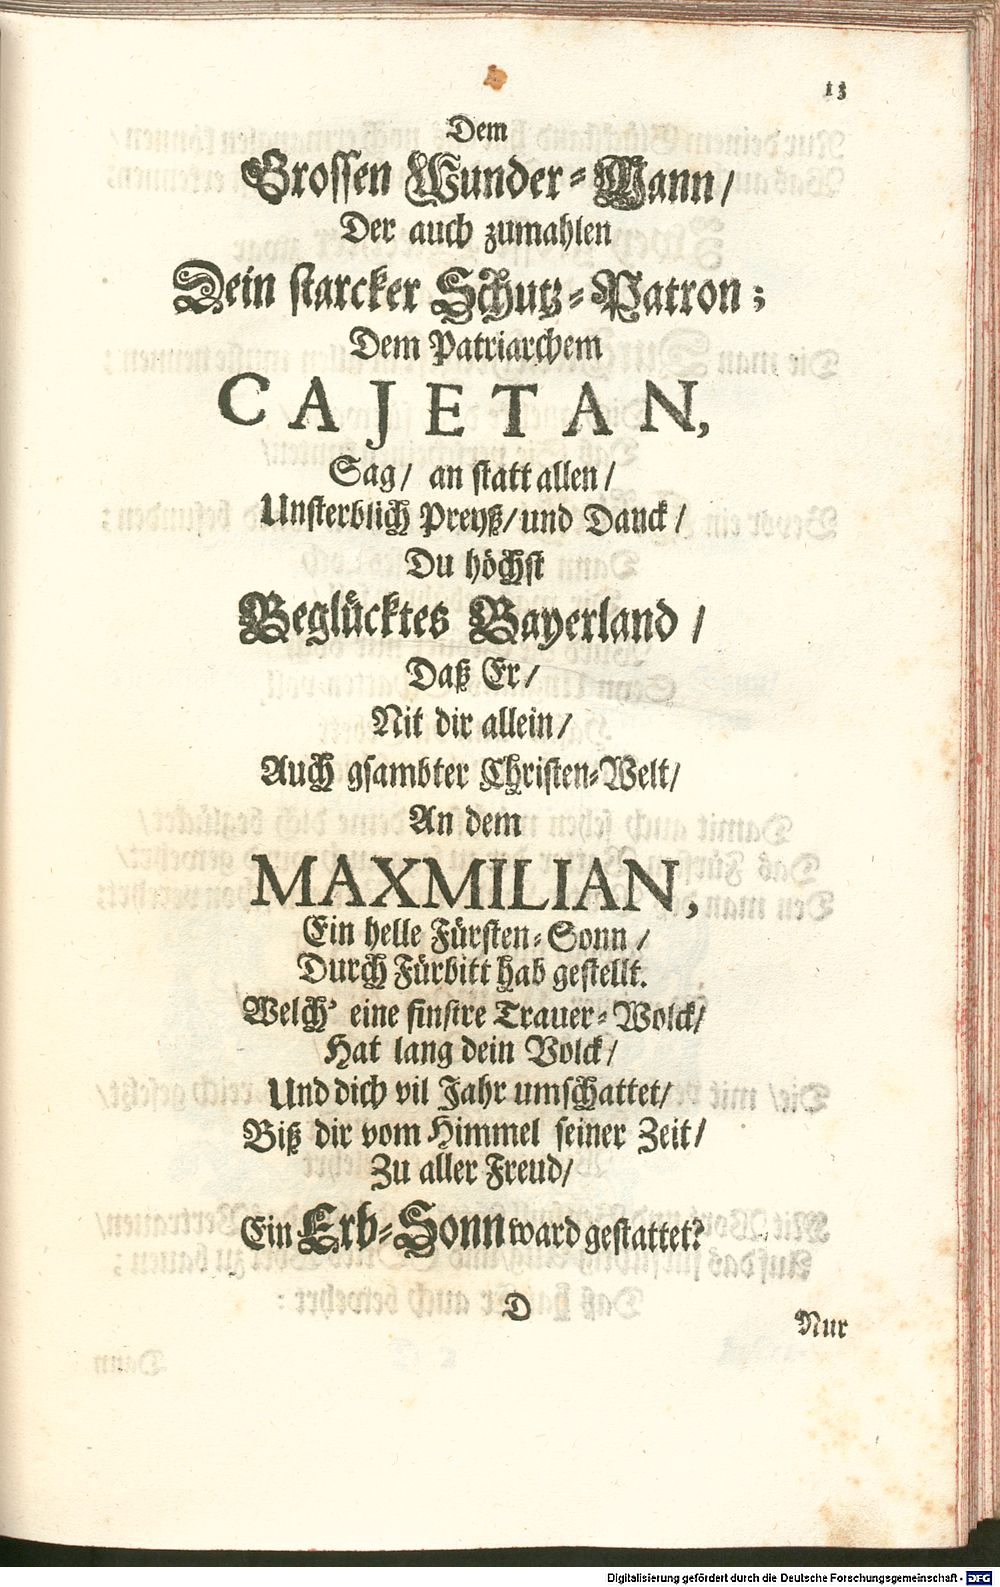 13
Dem
Grossen Wunder-Mann/
Der auch zumahlen
Dein starcker Schutz-Patron;
Dem Patriarchem
CAJETAN,
Sag/ an statt allen/
Unsterblich Preyß/ und Danck/
Du höchst
Beglücktes Bayerland/
Daß Er/
Nit dir allein/
Auch gsambter Christen-Welt/
An dem
MAXMILIAN,
Ein helle Fürsten-Sonn/
Durch Fürbitt hab gestellt.
Welch' eine finstre Trauer-Wolck/
Hat lang dein Volck/
Und dich vil Jahr umschattet/
Biß dir vom Himmel seiner Zeit/
Zu aller Freud/
Ein Erb-Sonn ward gestattet?
D
Nur
Digitalisierung gefördert durch die Deutsche Forschungsgemeinschaft - DFG